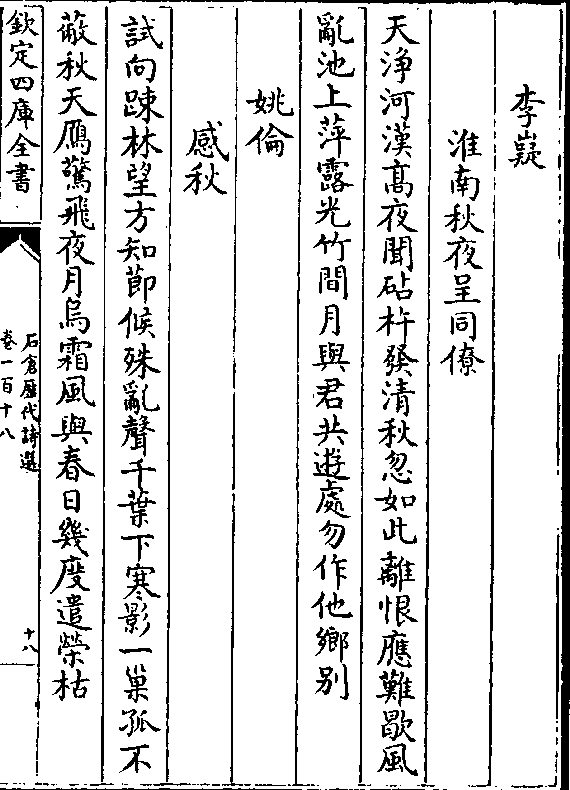 李嶷
淮南秋夜呈同僚
天浄河漢髙夜聞砧杵發清秋忽如此離恨應難歇風
亂池上萍露光竹間月與君共遊處勿作他鄉别
姚倫
感秋
試向疎林望方知節候殊亂聲千葉下寒影一巢孤不
蔽秋天鴈驚飛夜月烏霜風與春日幾度遣榮枯
欽定四庫全書
石倉歷代詩選
卷一百十八
十八